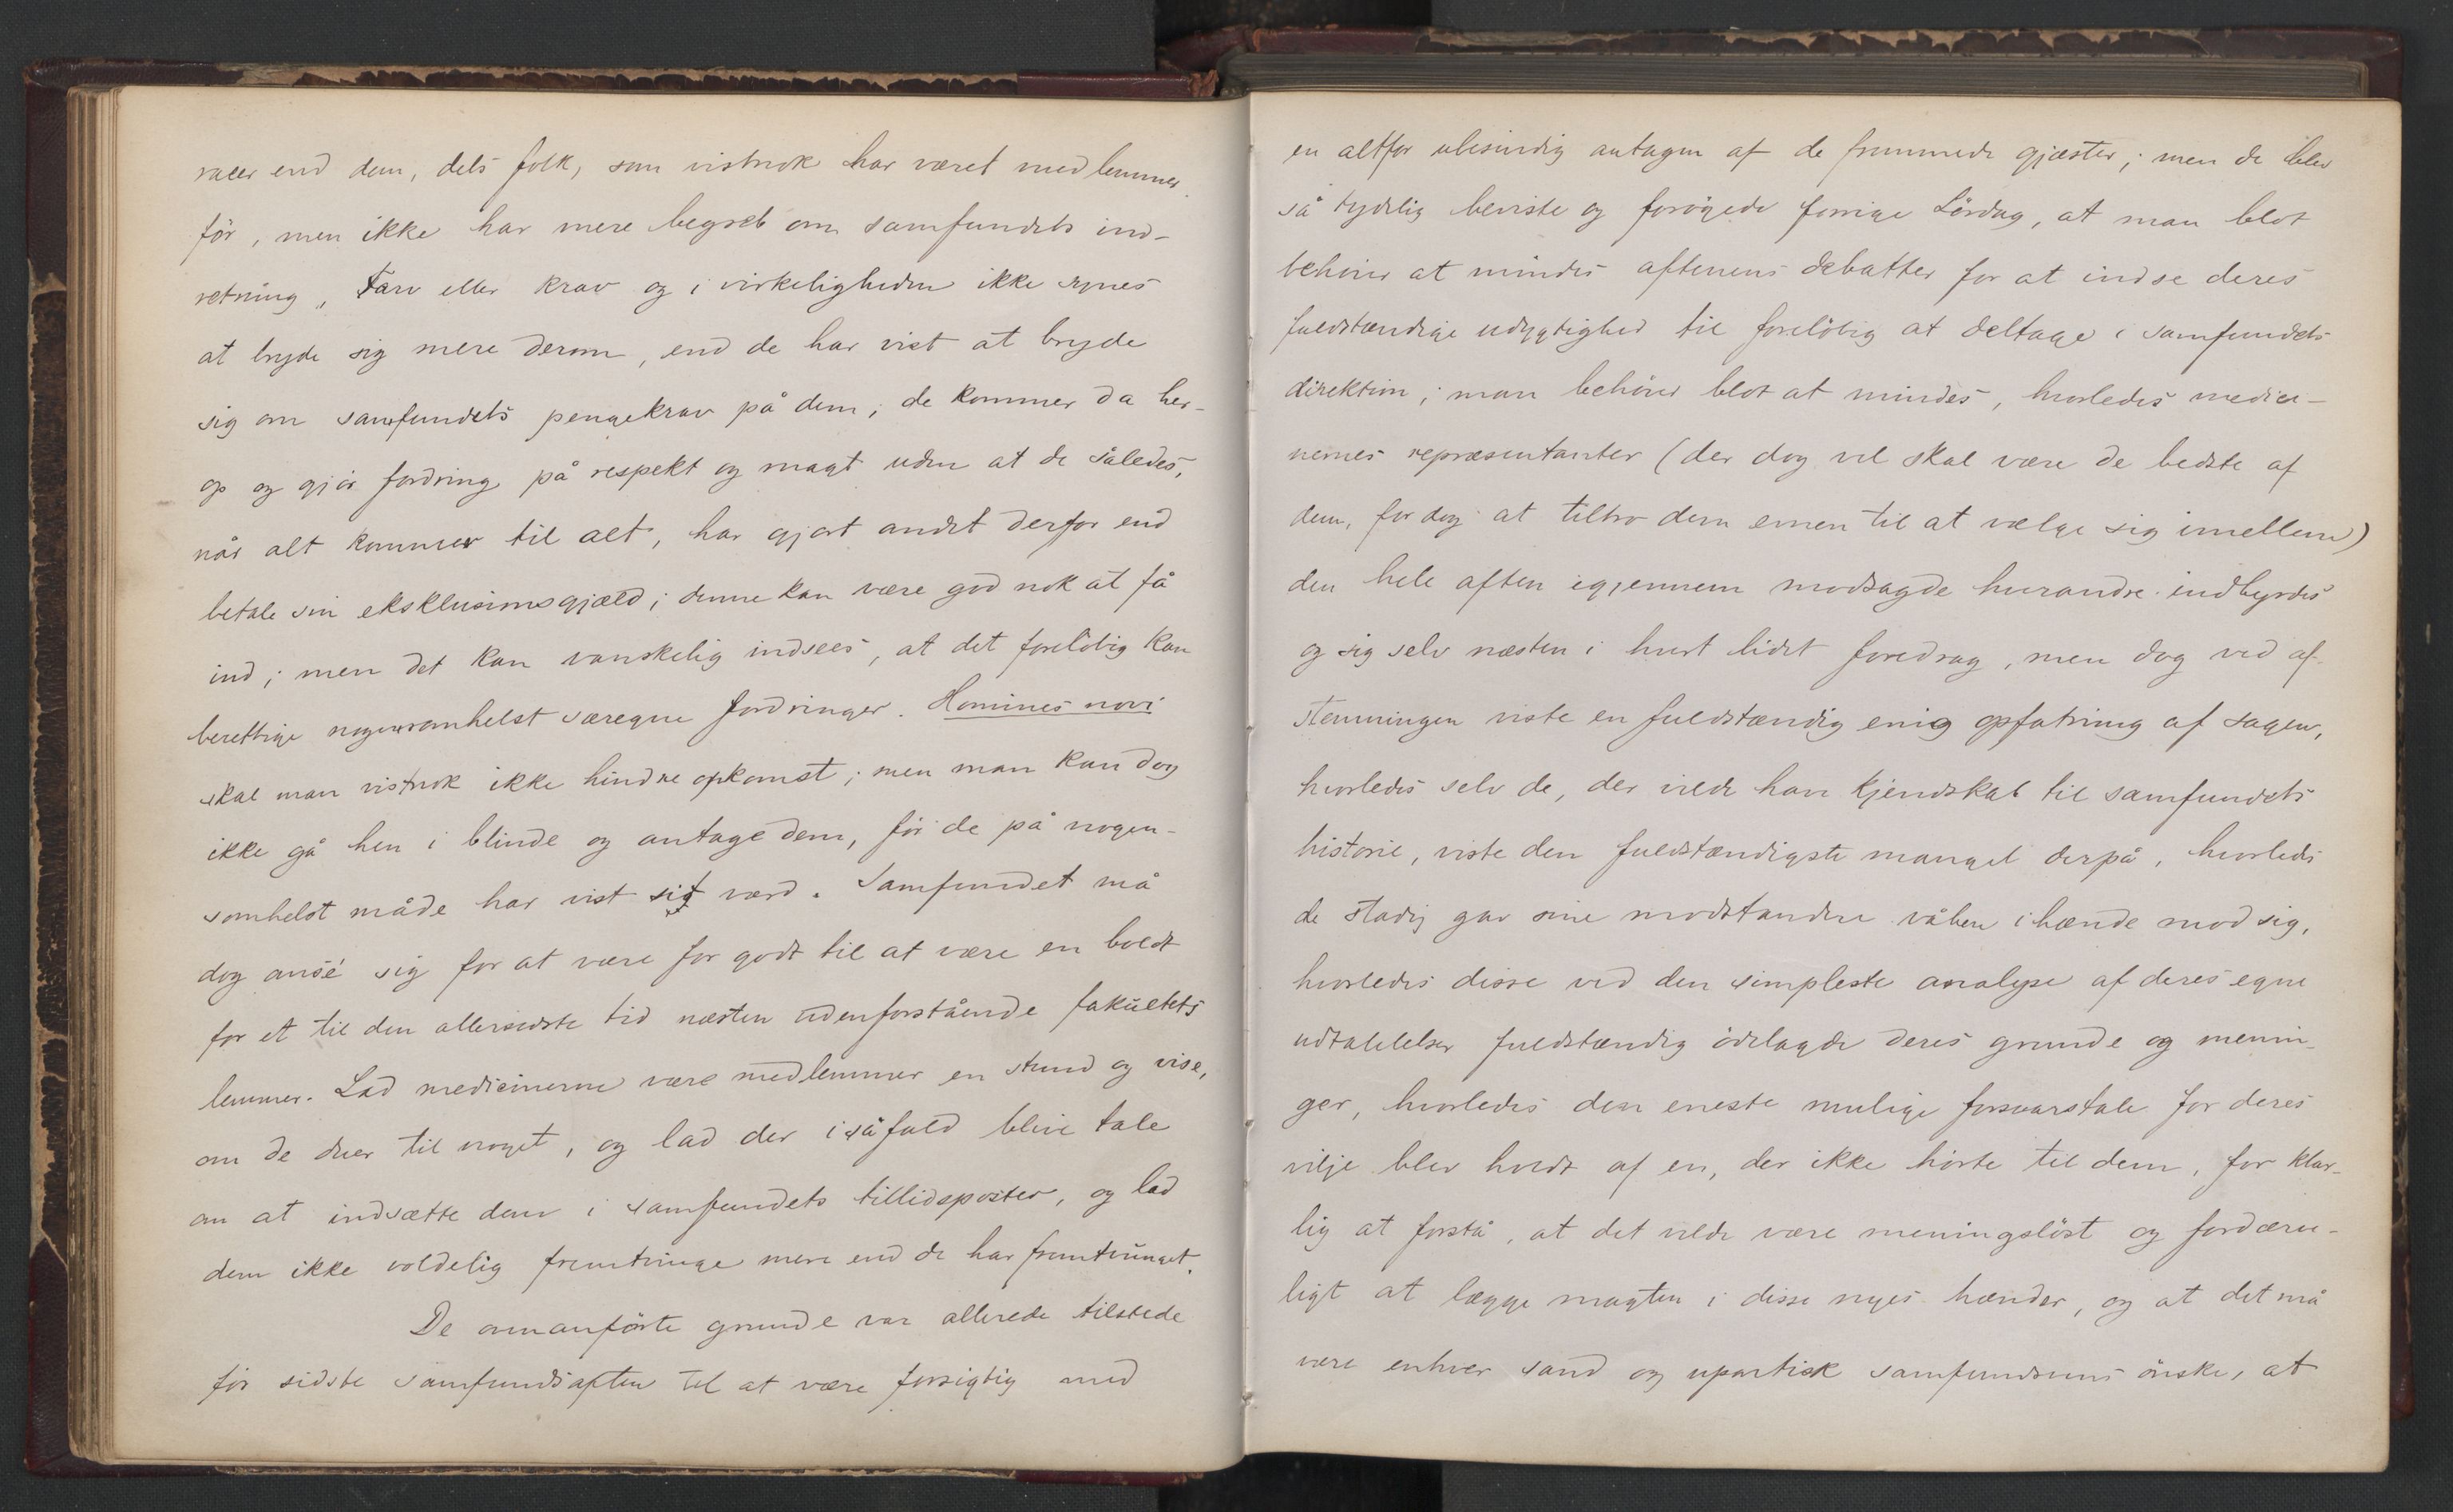 racer end dem, dels folk, som vistnok har været medlemmer
før, men ikke har mere begreb om samfundets ind-
retning, Tarv eller krav og i virkeligheden ikke synes
at bryde sig mere derom, end de har vist at bryde
sig om samfundets pengekrav på dem; de kommer da her-
op og gjør fordring på respekt og magt uden at de således,
når alt kommer til alt, har gjort andet derfor end
betale sin eksklusionsgjæld; denne kan være god nok at få
ind; men det kan vanskelig indsees, at det foreløbig kan
berettige nogensomhelst særegne fordringer. Homines novi
skal man vistnok ikke hindre opkomst; men man kan dog
ikke gå hen i blinde og antage dem, før de på nogen-
somhelst måde har vist sit værd. Samfundet må
dog ansé sig for at være for godt til at være en boldt
for et til den allersidste tid næsten udenforstående fakultets
lemmer. Lad medicinerne være medlemmer en stund og vise,
om de duer til noget, og lad der isåfald blive tale
om at indsætte dem i samfundets tillidsposter, og lad
dem ikke voldelig fremtvinge mere end de har fremtvunget.
De omanførte grunde var allerede tilstede
før sidste samfundsaften til at være forsigtig med
en altfor ubesindig antagen af de fremmede gjæster; men de blev
så tydelig beviste og forøgede forrige Lørdag, at man blot
behøver at mindes aftenens debatter for at indse deres
fuldstændige udygtighed til foreløbig at deltage i samfundets
direktion; man behøver blot at mindes, hvorledes medici-
nernes repræsentanter (der dog vel skal være de bedste af
dem, for dog at tiltro dem evnen til at vælge sig imellem)
den hele aften igjennem modsagde hverandre indbyrdes
og sig selv næsten i hvert lidet foredrag, men dog ved af-
stemningen viste en fuldstændig enig opfatning af sagen,
hvorledes selv de, der vilde have kjendskab til samfundets
historie, viste den fuldstændigste mangel derpå, hvorledes
de stadig gav sine modstandere våben ihænde mod sig,
hvorledes disse ved den simpleste analyse af deres egne
udtalelelser fuldstændig ødelagde deres grunde og menin-
ger, hvorledes den eneste mulige forsvarstale for deres
vilje blev holdt af en, der ikke hørte til dem, for klar-
lig at forstå, at det vilde være meningsløst og fordærve-
ligt at lægge magten i disse nyes hænder, og at det må
være enhver sand og upartisk samfundsvens ønske, at